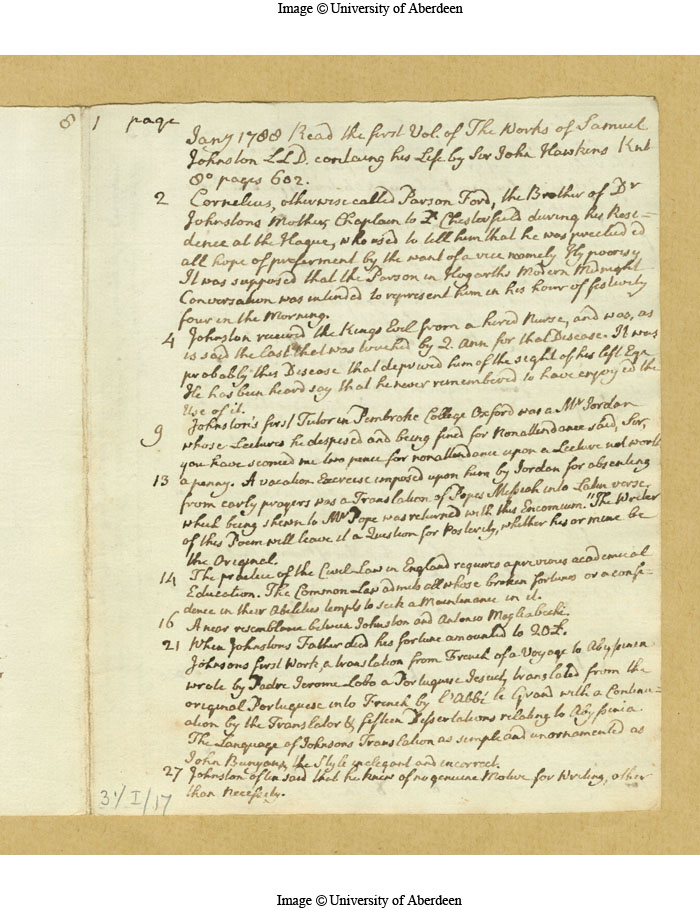 Image © University of Aberdeen
8
1 page
Jany 1788 Read the first Vol. of The Works of Samuel
Johnston L.L.D. containg his Life by Sir John Hawkins Knt
8o pages 602.
2 Cornelius, otherwise called Parson Ford, the Brother of Dr
Johnstons Mother, Chaplain to Ld Chesterfield during his Resi-
dence at the Hague, who used to tell him that he was precluded
all hope of preferment by the want of a vice namely Hypocrisy
It was supposed that the Parson in Hogarths Modern Midnight
Conversation was intended to represent him in his hour of festivity
four in the Morning.
4 Johnston received the Kings Evil from a hired Nurse, and was, as
is said the last that was touched by Q. Ann for that Disease. It was
probably this Disease that deprived him of the sight of his left Eye
He has been heard say that he never remembered to have enjoyed the
Use of it.
9 Johnston's first Tutor in Pembroke College Oxford was a Mr Jordan
whose Lectures he despised and being fined for Nonattendance said, Sir,
you have sconced me two pence for nonattendance upon a Lecture not worth
13 a penny. A vacation Exercise imposed upon him by Jordan for absenting
from early prayers was a Translation of Popes Messiah into Latin verse,
which being shewn to Mr Pope was returned with this Encomium. "The Writer
of this Poem will leave it a Question for Posterity, whether his or mine be
the Original.
14 The practice of the Civil Law in England requires a previous academical
Education. The Common Law admits all whose broken fortunes or a confi-
dence in their Abilities tempts to seek a Maintenance in it.
16 A near resemblance between Johnston and Antonio Magliabechi.
21 When Johnstons Father died his fortune amounted to 20£.
Johnsons first Work, a translation from French of a Voyage to Abyssinia
wrote by Padre Jerome Lobo a Portuguese Jesuit, translated from the
original Portuguese into French by l'Abbé le Grand with a Continu-
ation by the Translator & fifteen Dissertations relating to Abyssinia.
The Language of Johnsons Translation as simple and unornamented as
John Bunyans, the Style inelegant and incorrect.
27 Johnston often said that he knew of no genuine Motive for Writing, other
than Necessity.
31/I/17
Image © University of Aberdeen